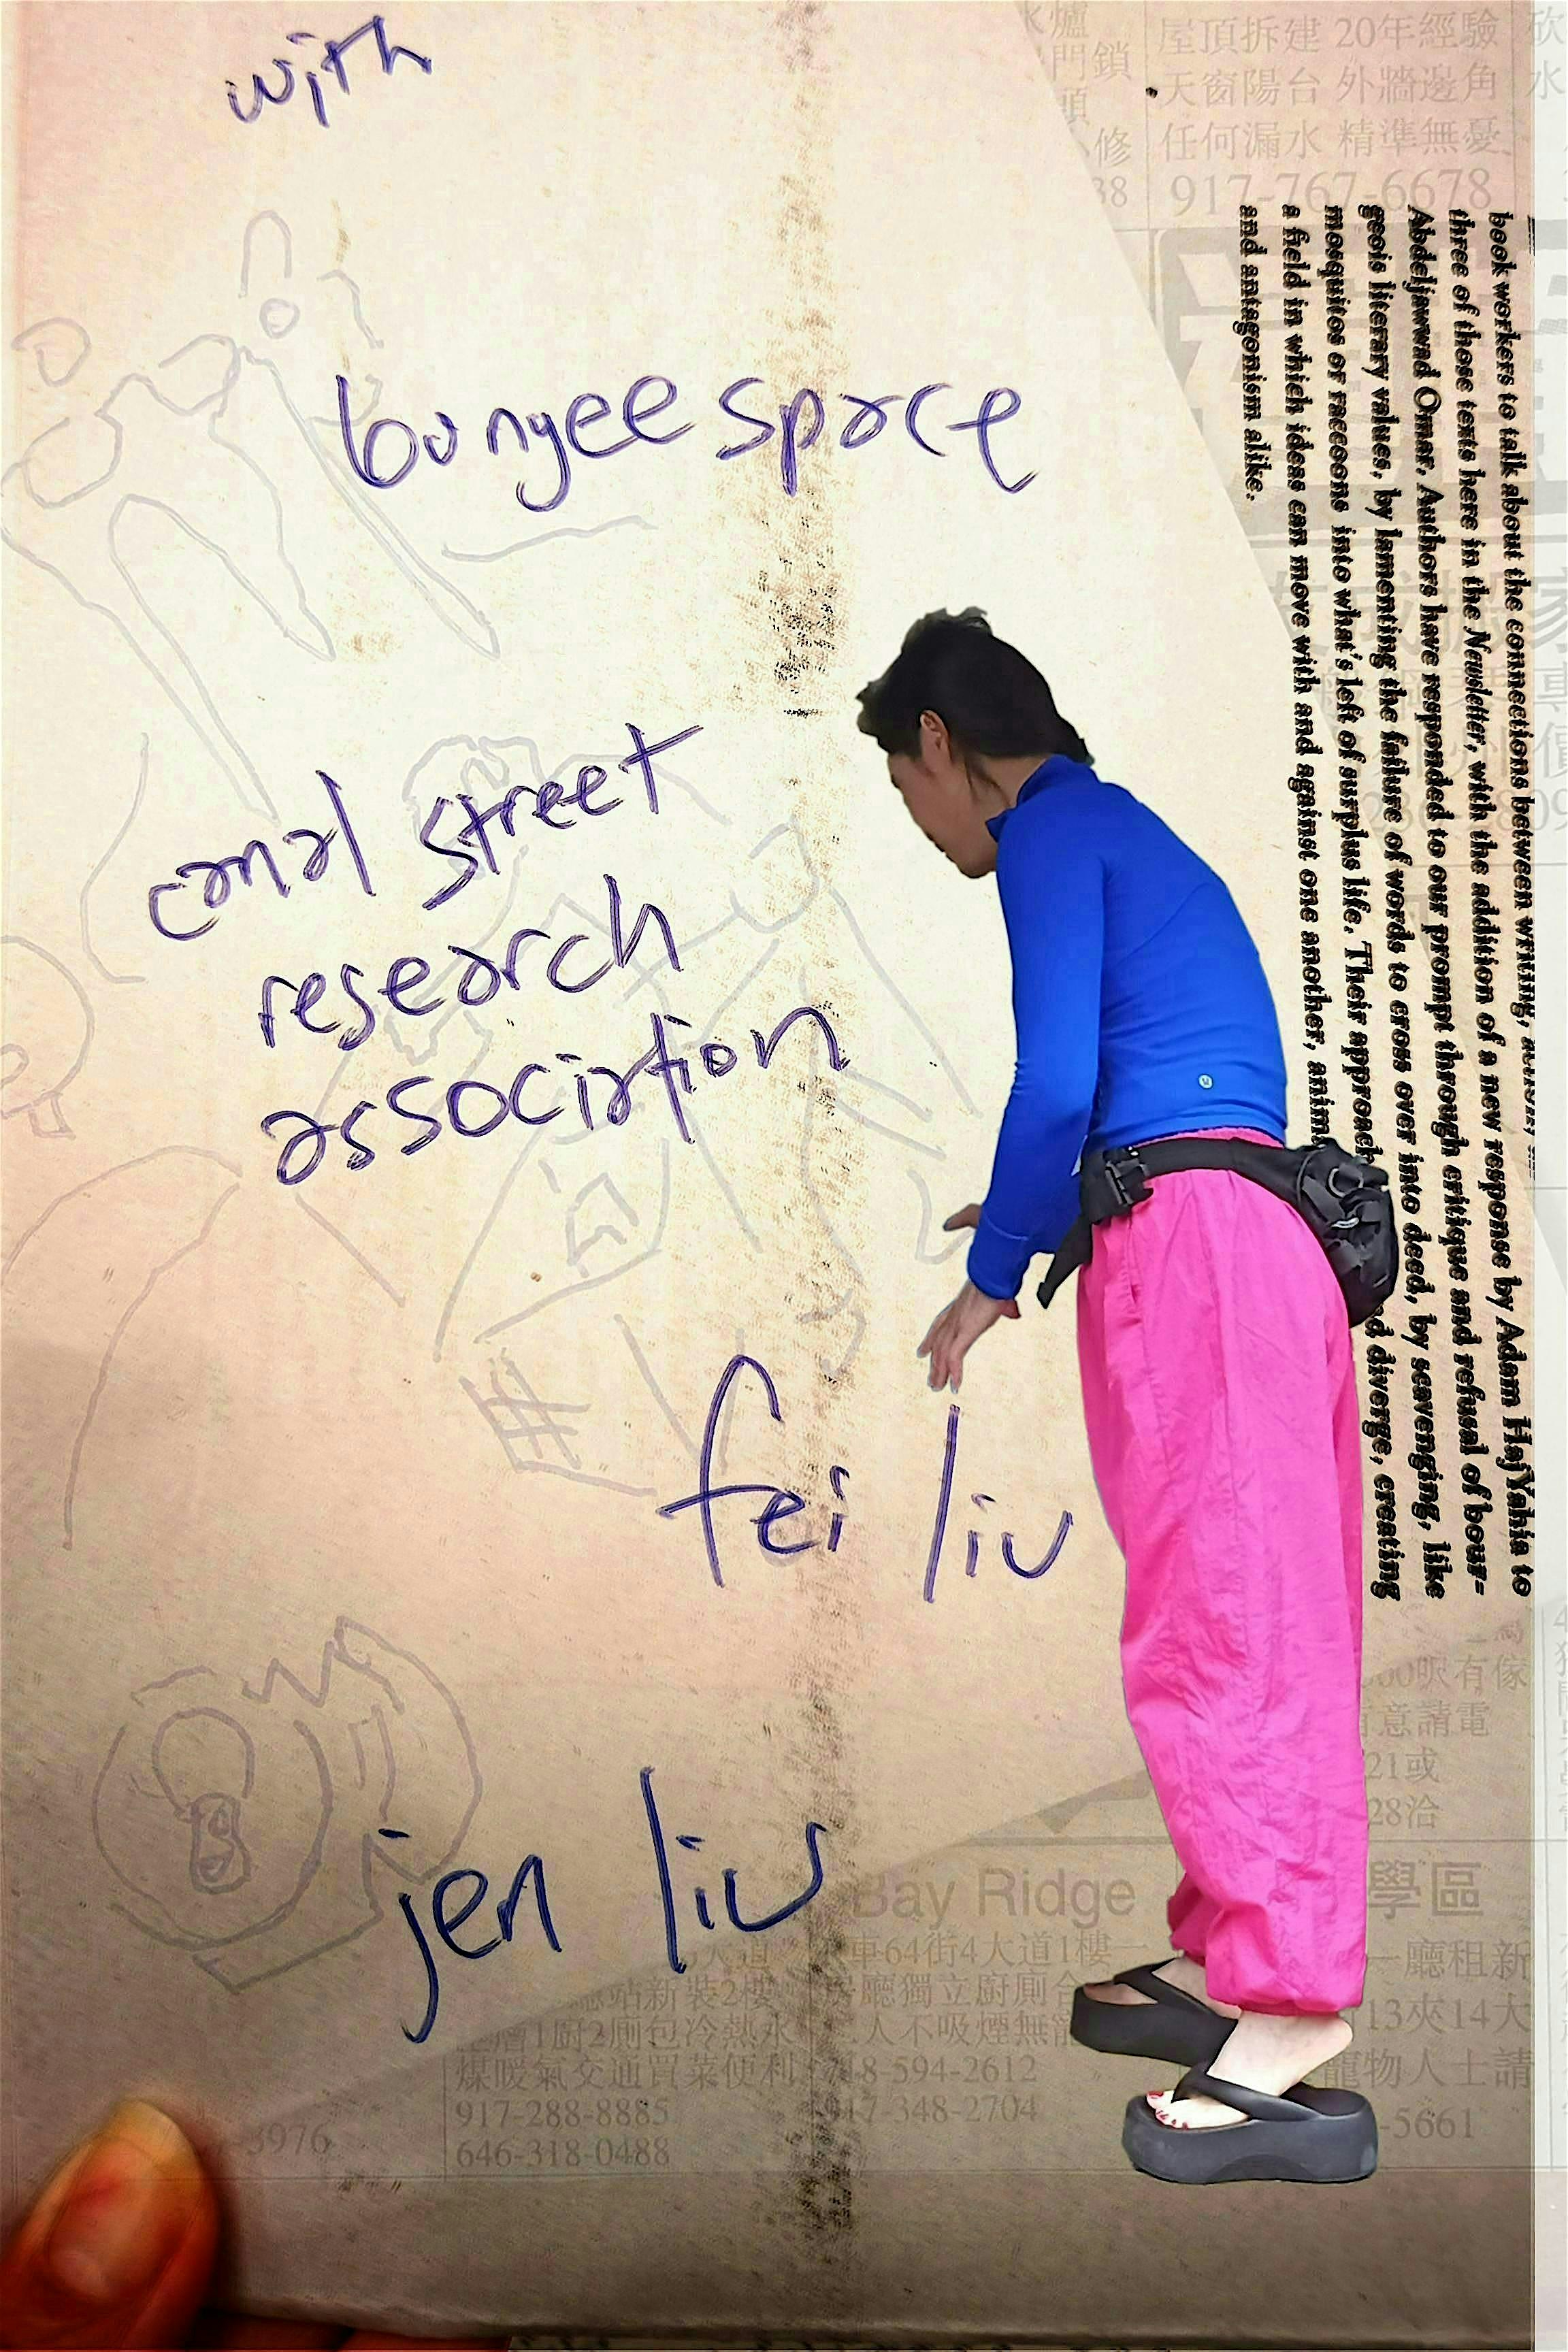 with
bungee space
canal street
research
association
fei liu
jen liu
book workers to talk about the connections between writing,
three of those texts here in the Newsletter, with the addition of a new response by Adam HajYahia to
Abdeljawad Omar. Authors have responded to our prompt through critique and refusal of bour-
geois literary values, by lamenting the failure of words to cross over into deed, by scavenging, like
mosquitos or raccoons into what's left of surplus life. Their approach d diverge, creating
a field in which ideas can move with and against one another, anim
and antagonism alike.
水爐
門鎖
頭
修
38
屋頂拆建 20年經驗
天窗陽台 外牆邊角
任何漏水 精準無憂
917-767-6678
欣
水
呎有傢
意請電
21或
28洽
Bay Ridge
學區
大道
車64街4大道1樓一
一廳租新
站新裝2樓
廳獨立廚廁合
13夾14大
1廚2廁包冷熱水
人不吸煙無寵
煤暖氣交通買菜便利
718-594-2612
寵物人士請
917-288-8885
917-348-2704
-5661
-3976
646-318-0488